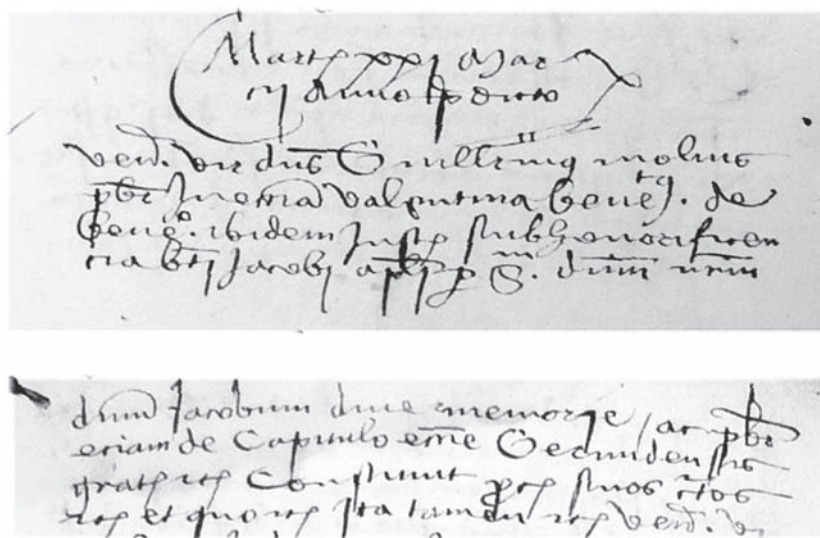 Martis xxj Mar
cij Anno predicto
ven. vir dns Guillermus molins
pbr In eccia Valentina benets. de
benefo. ibidem Instto sub honorificen
cia bti Jacobi apli per S. dnm nrm
dnm Jacobum dive memorie / ac pbr
eciam de Capitulo eccne Secundensis
gratis etc Constituit procs suos certos
etc et quos etc Ita tamen etc ven.